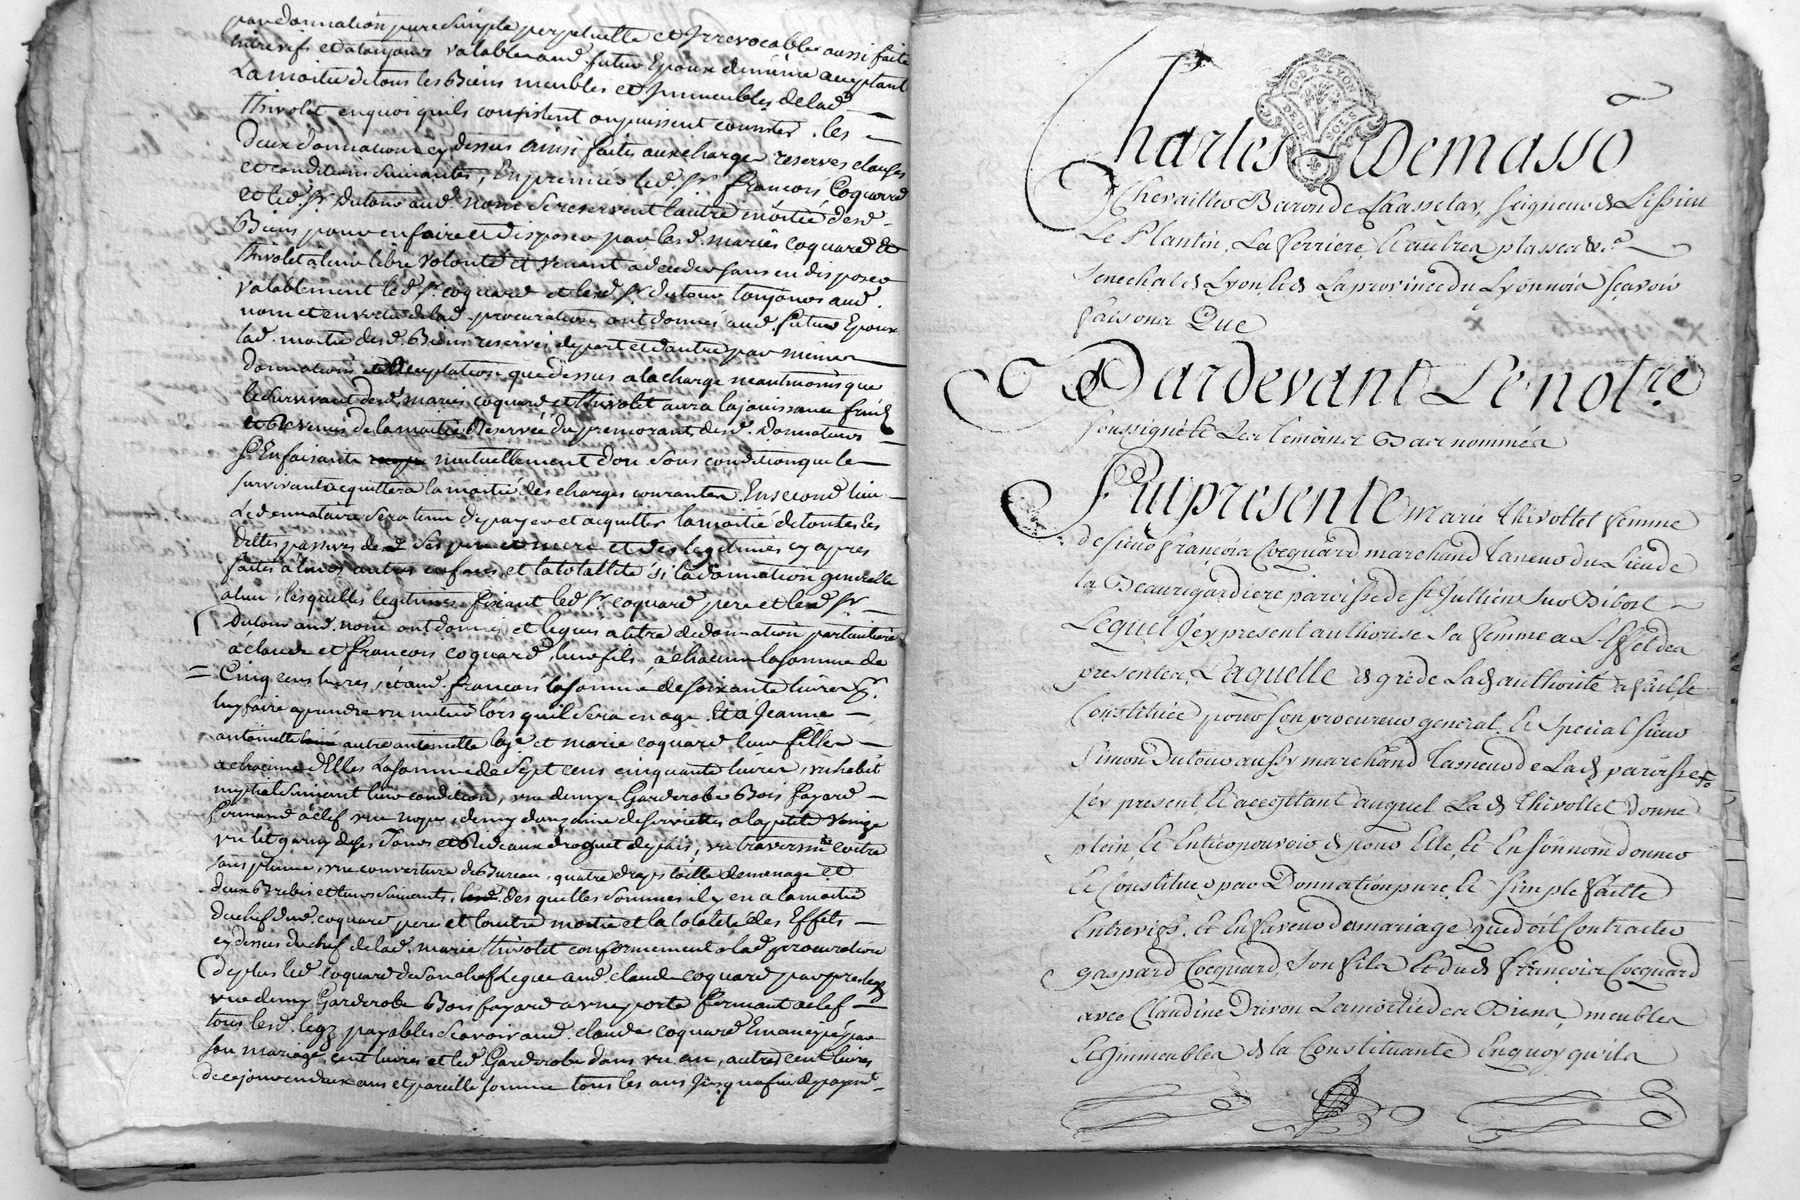 par donnation pure simple perpetuelle et Irrevocable aussi faite
entrevif et atoujours valable aud. futur Epoux dememe acceptant
La moitié de tous les Biens meubles et Immeubles de lad.
thivolet enquoi quils consistent ou puissent consister. les
deux donnations cy dessus ainsi faites aux charges reserves clauses
et conditions suivantes, En premier led. Sr. françois Coquard
et led. Sr. dutour aud. nom se reservent lautre moitié desd.
Biens pour en faire et disposer par lesd. mariés coquard et
thivolet a leur libre volonté et venant a deceder sans en disposer
valablement led. Sr. coquard et led. Sr. dutour toujours aud.
nom et en vertu de lad. procuration ont donné aud. futur Epoux
lad. moitié desd. Biens reservés de part et dautre par meme
donnation et acceptation que dessus a la charge neantmoins que
le survivant desd. mariés coquard et thivolet aura la jouissance fruits
et Revenus de la moitié Reservée du premourant desd. Donnateurs
S'En faisants mutuellement don sous condition que le
survivant acquittera la moitié des charges courantes. En second lieu
Le donnataire sera tenu de payer et acquitter la moitié de toutes les
dettes passives de ses pere et mere et des legitimes cy apres
faites a leurs autres enfans, et la totallité si la donnation generalle
a lieu, lesquelles legitimes fixant led. Sr. coquard pere et led. Sr.
dutour aud. nom ont donné et legués a titre de donnation particuliere
à claude et françois coquard, leurs fils à chacun la somme de
Cinq cens livres, et aud. françois la somme de soixante livres pr.
luy faire aprendre un metier lors quil sera en age. Et a Jeanne
antoinette autre antoinette laje et marie coquard leurs filles
a chacune d'Elles La somme de Sept cens cinquante livres, un habit
nuptial suivant leur condition, une demye Garderobe Bois fayard
fermand à clef une nape, demy douzaine de serviettes a la petite Venize
un lit garny de ses Tours et Rideaux droguet de païs, un traversin coitre
sans plume, une couverture de Bureau, quatre draps toille de menage et
deux Brebis et leurs suivants, des quelles sommes il y en a la moitié
du chef dud. coquard pere et l'autre moitié et la totalité des Effets
cy dessus du chef de lad. marie thivolet conformement a lad. procuration
de plus led. coquard de son chef Legue aud. claude coquard par preciput
une demy Garderobe Bois fayard a une porte fermant a clef
tous lesd. legs payables scavoir aud. claude coquard Emancipé par
son mariage, cent livres et led. Garderobe dans un an, autres cent livres
de ce jour en deux ans et pareille somme tous les ans jusqu'a fin de payemt.
Charles Demasso
Chevallier Baron de Chasselay, Seigneur de Lissieu
Le Plantin, La ferriere, et autres places
Senechal de Lyon, et de La province du Lyonnois sçavoir
faisons Que
Pardevant Le notre.
soussigné et Les temoins Bas nommés
Fut presente marie thivollet femme
de sieur françois Cocquard marchand Taneur du Lieu de
la Beauregardiere paroisse de St Jullien sur Bibost
Lequel Jcy present authorise Sa femme a L'Effet des
presentes, Laquelle de gré de Lad. authorité a faitte
Constituée pour Son procureur general et special sieur
Simon Dutour aussy marchand Taneur de Lad. paroisse
Jcy present, et acceptant auquel Lad. thivollet donne
plein et Entier pouvoir de pour Elle, et En son nom donner
et Constituer par Donnation pure et Simple faitte
Entrevifs. et En faveur du mariage que doit Contracter
gaspard Cocquard, Son fils et dud. françois Cocquard
avec Claudine Drivon La moitié des Biens, meubles
et Jmmeubles de la Constituante En quoy qu'ils